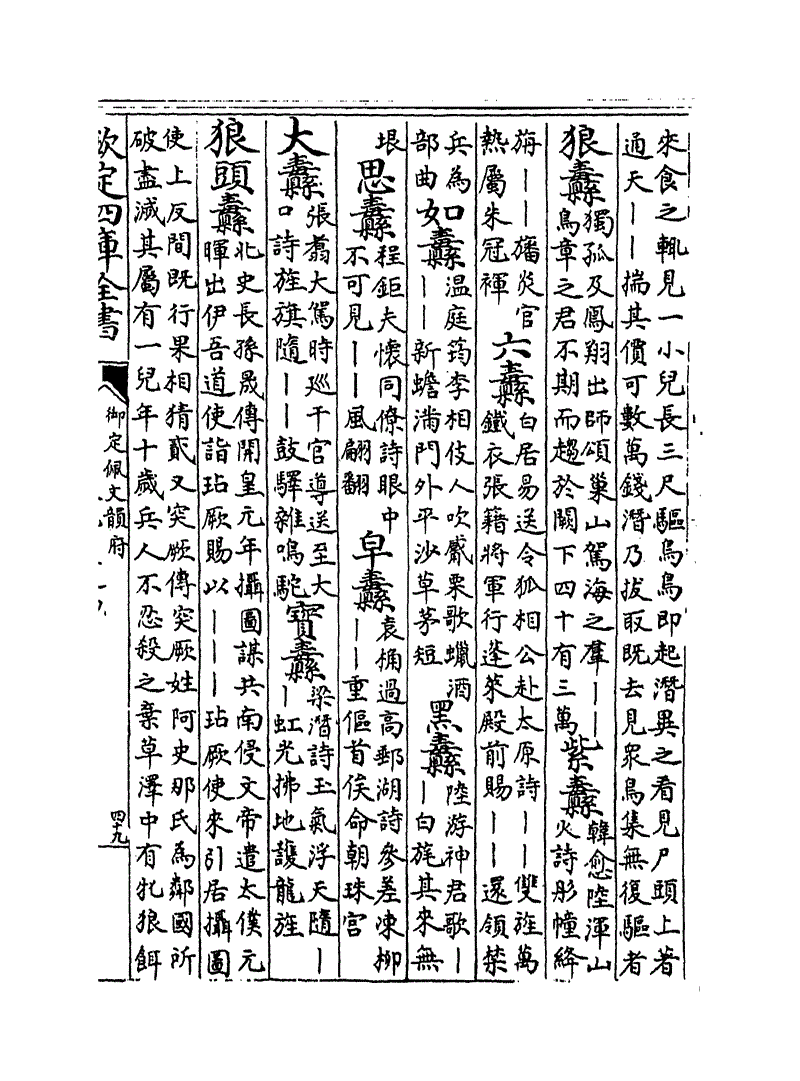 來食之輒見一小兒長三尺驅烏烏即起潛異之看見尸頭上著
通天——揣其價可數萬錢潛乃拔取既去見衆烏集無復驅者
狼纛獨孤及鳳翔出師頌巢山駕海之羣——
鳥章之君不期而趨於闕下四十有三萬紫纛韓愈陸渾山
火詩彤幢絳
旃——旛炎官
熱屬朱冠褌六纛白居易送令狐相公赴太原詩——雙旌萬
鐵衣張籍將軍行蓬萊殿前賜——還領禁
兵為口
部曲女纛溫庭筠李相伎人吹觱栗歌蠟酒
——新蟾滿門外平沙草茅短黑纛陸游神君歌—
—白旄其來無
垠思纛程鉅夫懷同僚詩眼中
不可見——風翩翻皁纛袁桷過高郵湖詩參差凍柳
——重傴首俟命朝珠宮
大纛張翥大駕時巡千官導送至大
口詩旌旗隨——鼓驛雜鳴駝寶纛梁潛詩玉氣浮天隨—
—虹光拂地護龍旌
狼頭纛北史長孫晟傳開皇元年攝圖謀共南侵文帝遣太僕元
暉出伊吾道使詣玷厥賜以———玷厥使來引居攝圖
使上反間既行果相猜貳又突厥傳突厥姓阿史那氏為鄰國所
破盡滅其屬有一兒年十歲兵人不忍殺之棄草澤中有牝狼餌
欽定四庫全書
御定佩文韻府
四十九